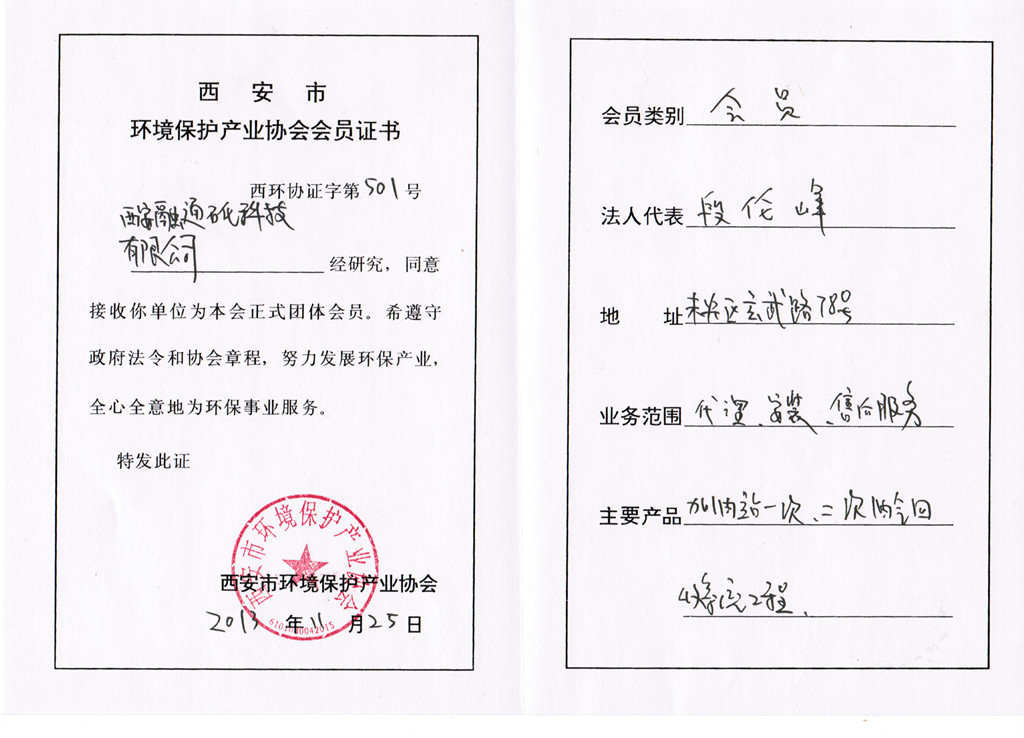 西安市
环境保护产业协会会员证书
西环协证字第501号
西安融通石化科技
有限公司
经研究，同意
接收你单位为本会正式团体会员。希遵守
政府法令和协会章程，努力发展环保产业，
全心全意地为环保事业服务。
特发此证
西安市环境保护产业协会
西安市环境保护产业协会
2013年11月25日
会员类别 会员
法人代表 段伦峰
地址 未央区玄武路78号
业务范围 代理、安装、售后服务
主要产品 加油站一次、二次油气回
收系统工程、